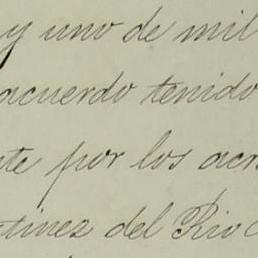 y uno de mil
acuerdo tenido
te por los acr
tinez del Rio